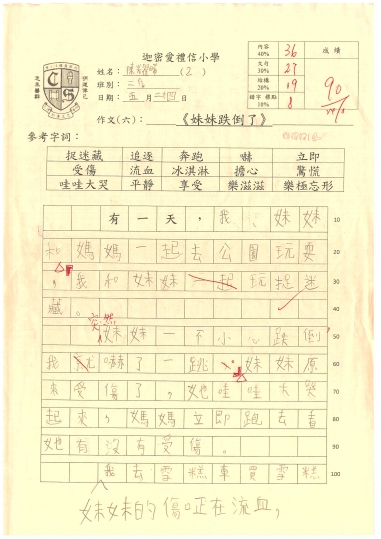 迦密愛禮信小學
姓名：陳 (2)
班別：三
日期：五月二十四日
內容 40% 36
文句 30% 27
結構 20% 19
錯字 標點 10% 8
成績 90
作文(六)： 《妹妹跌倒了》
參考字詞：
捉迷藏 追逐 奔跑 嚇 立即
受傷 流血 冰淇淋 擔心 驚慌
哇哇大哭 平靜 享受 樂滋滋 樂極忘形
有一天，我、妹妹 10
和媽媽一起去公園玩耍 20
，我和妹妹一起玩捉迷 30
藏。 40
突然
妹妹一不小心跌倒， 50
我尤嚇了一跳，妹妹原 60
來受傷了，她哇哇大哭 70
起來，媽媽立即跑去看 80
她有沒有受傷。 90
我去雪糕車買雪糕 100
妹妹的傷口正在流血，